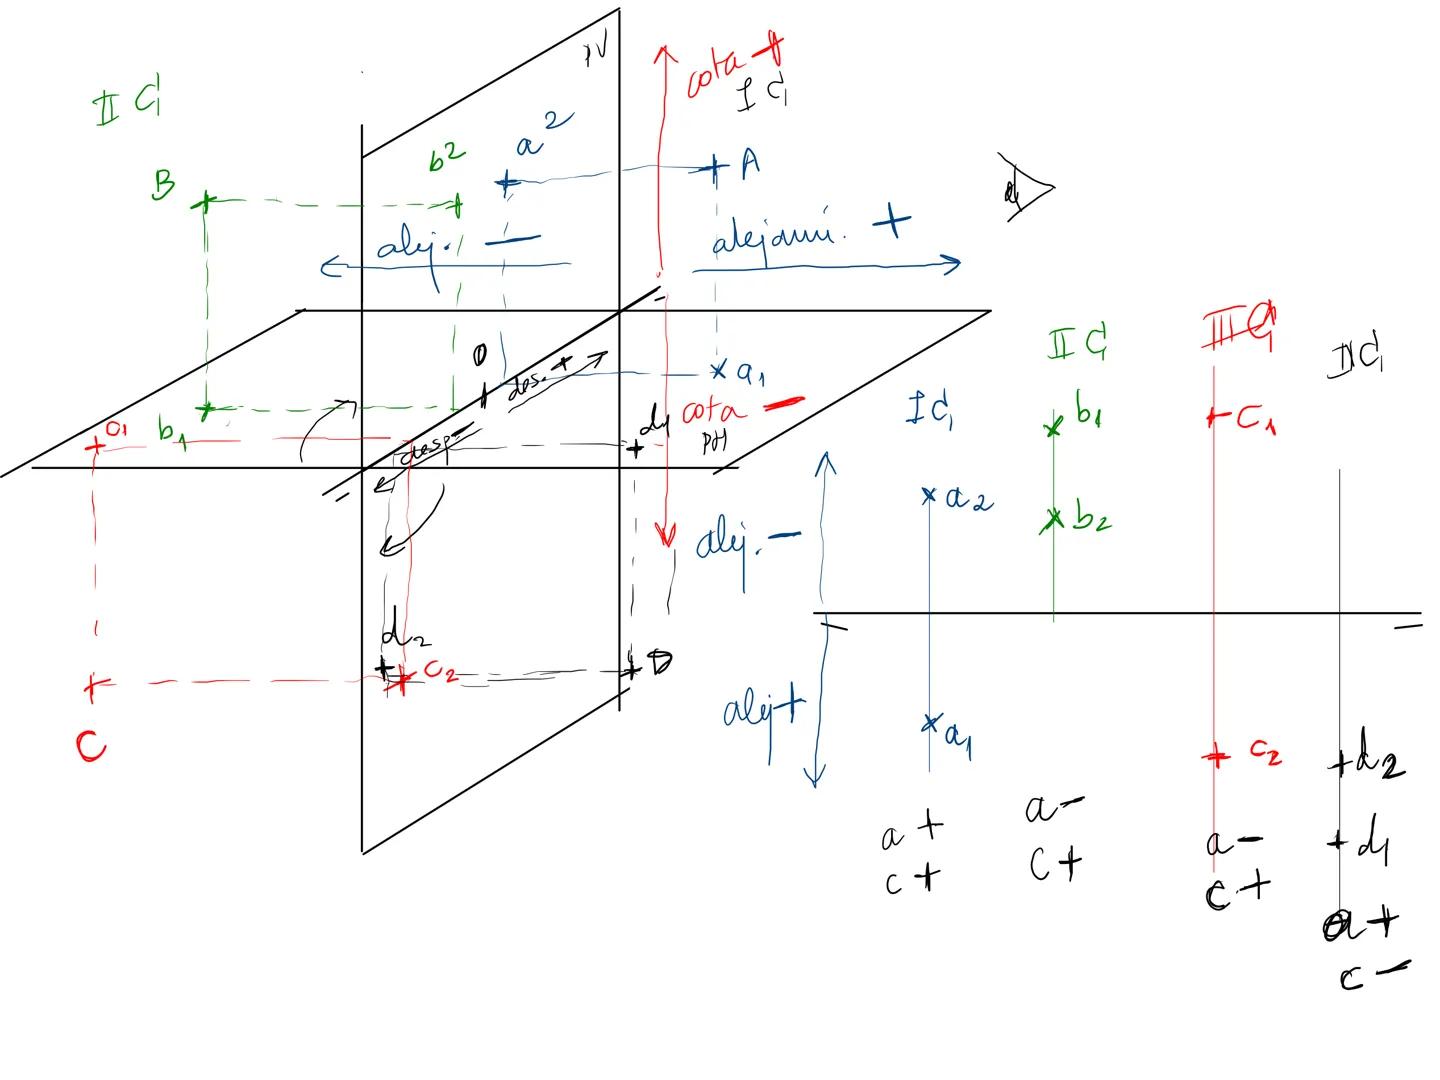 PV
cota +
I C
II C
a2
b2
B
A
alej. -
alejami. +
O
des. +
a1
cota -
d1
PH
c1
b1
desp -
d2
c2
D
C
I C
II C
III C
IV C
a2
b1
b2
c1
alej. -
alej +
a1
c2
d2
d1
a +
c +
a -
c +
a -
c +
a +
c -